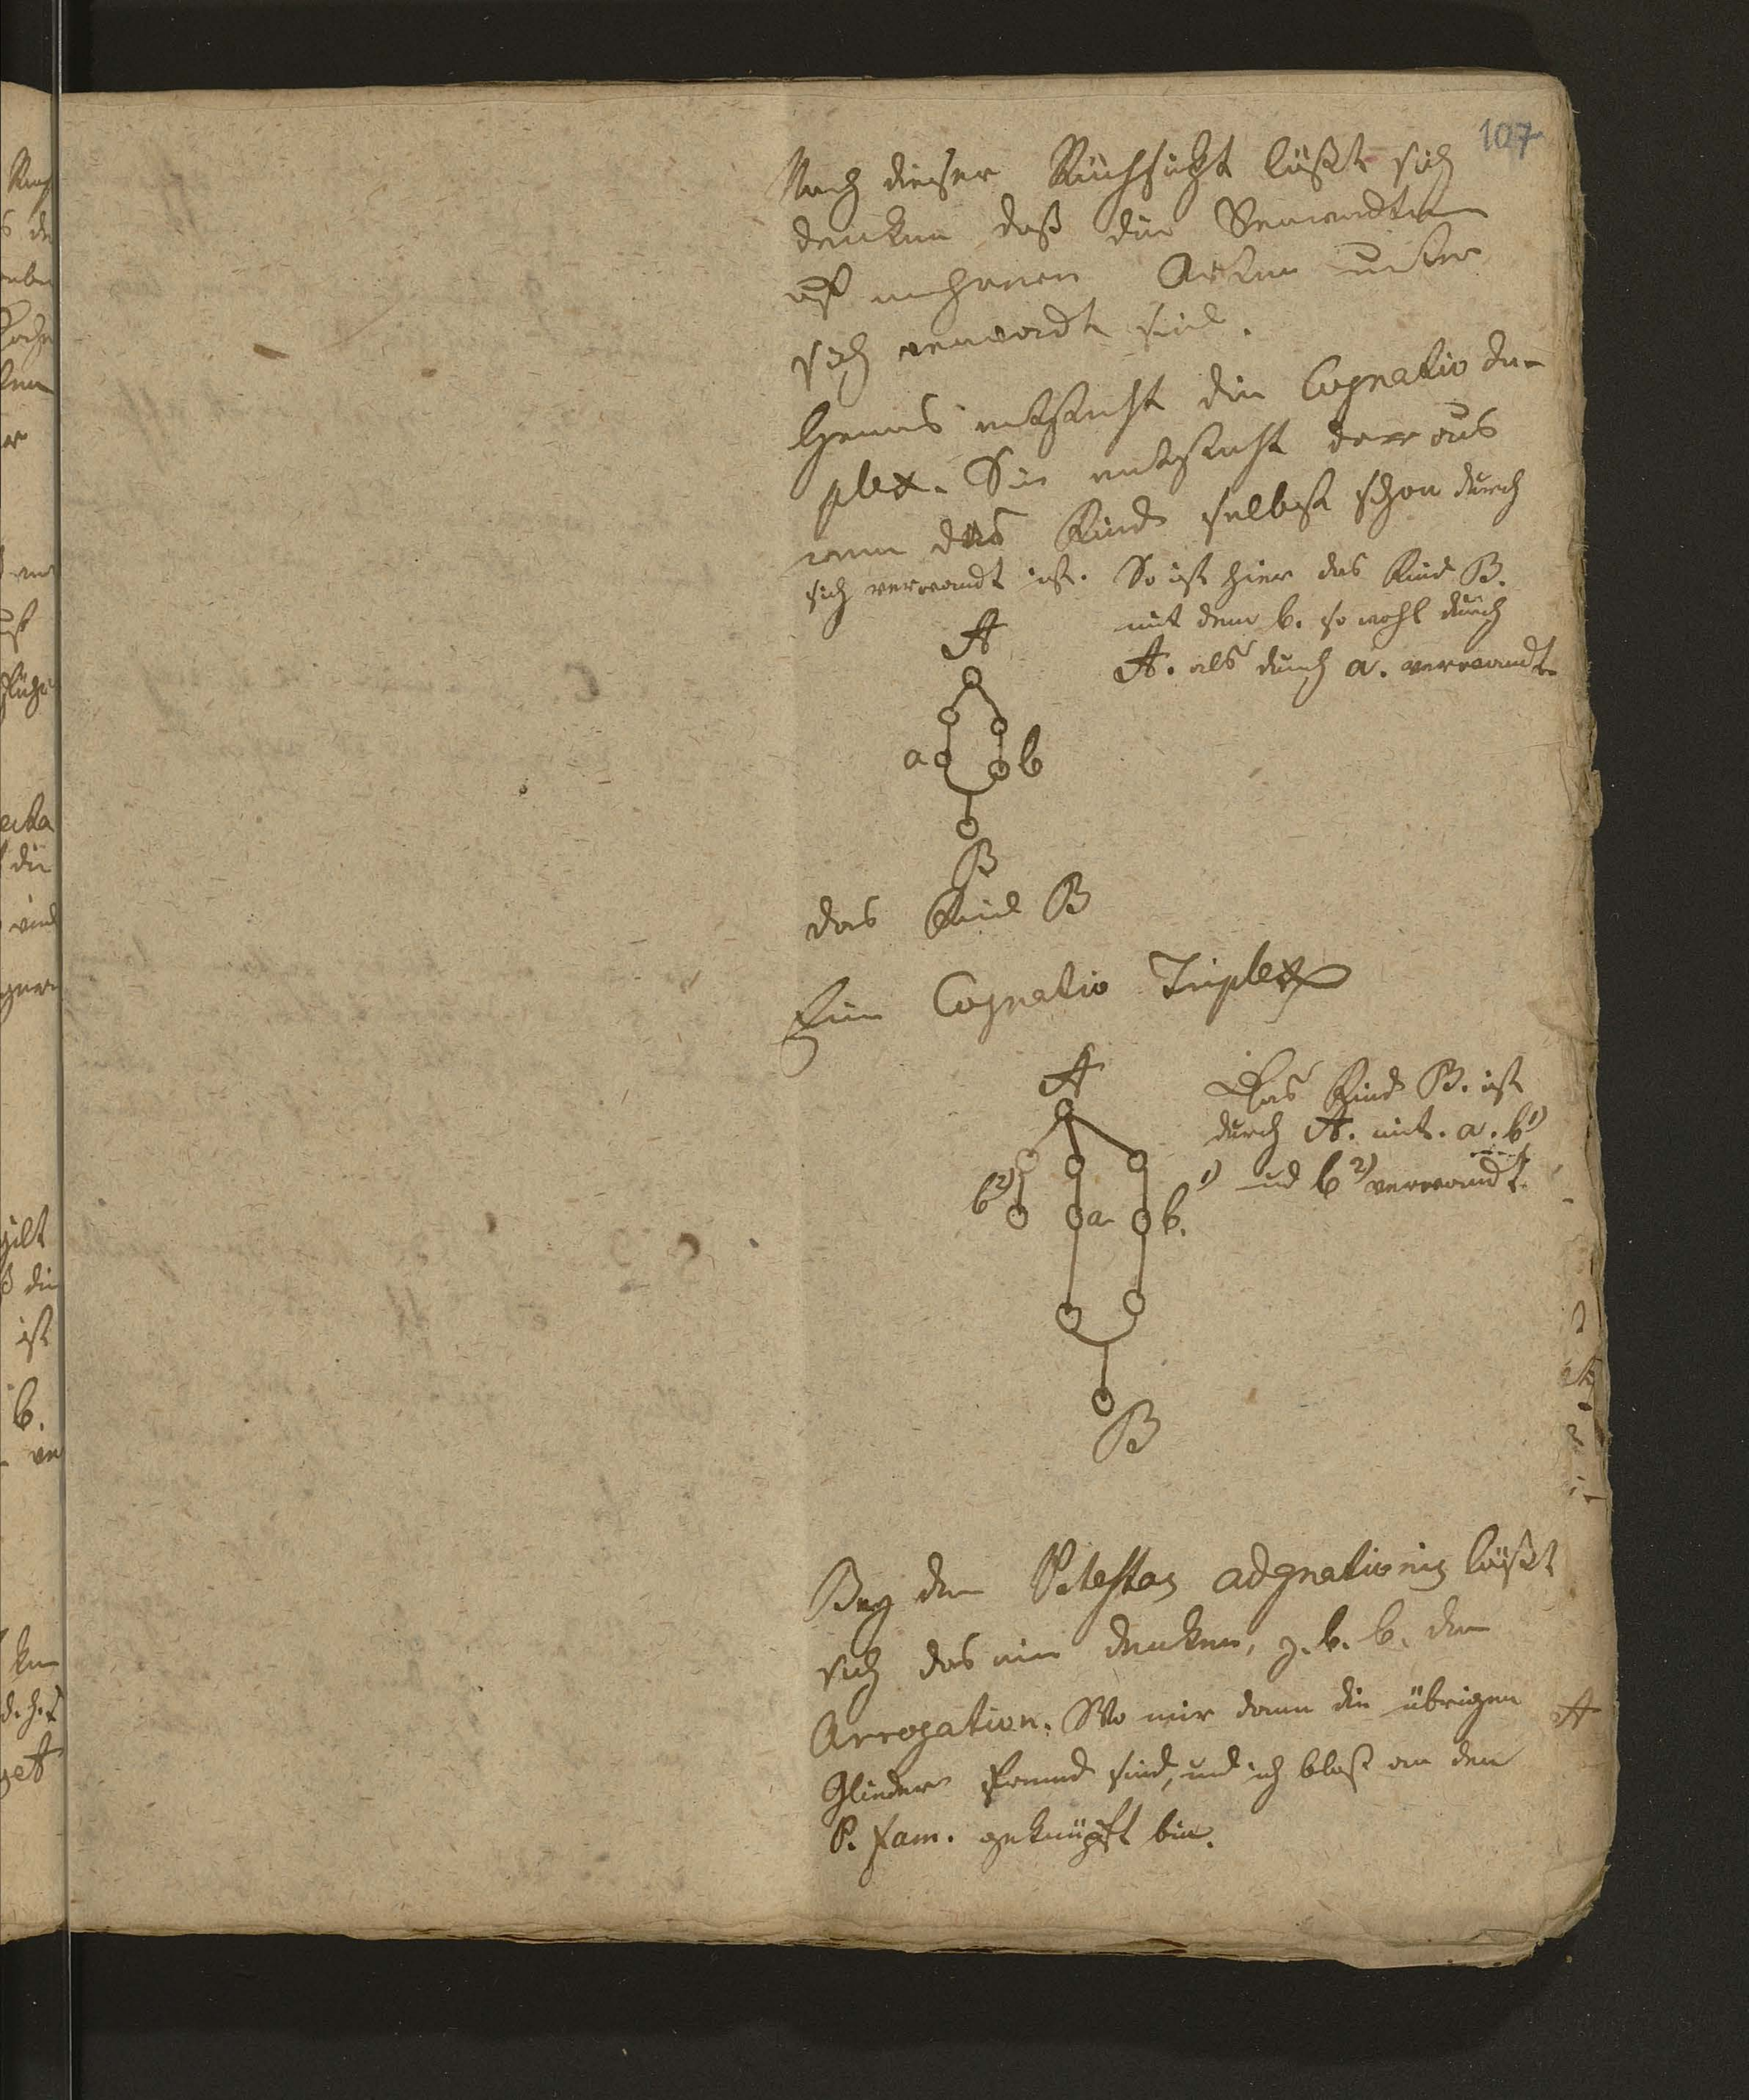 107
Nach dieser Rücksicht läßt sich
denken daß die Verwandten
auf mehrere Arten unter
sich verwandt sind.
Hieraus entsteht die Cognatio du-
plex. Sie entsteht daraus
wenn das Kind selbst schon durch
sich verwandt ist. So ist hier das Kind B.
mit dem b. so wohl durch
A. als durch a. verwandt.
A
a b
B
das Kind B
Eine Cognatio Triplex
A
Das Kind B. ist
durch A. mit. a. b 1)
und b 2) verwandt.
b 2) a b. 1)
B
Bey der Potestas adgnationis läßt
sich das nie denken, z. b. b. der
Arrogation. Wo mir dann die übrigen
Glieder fremd sind, und ich bloß an den
P. fam. geknüpft bin.